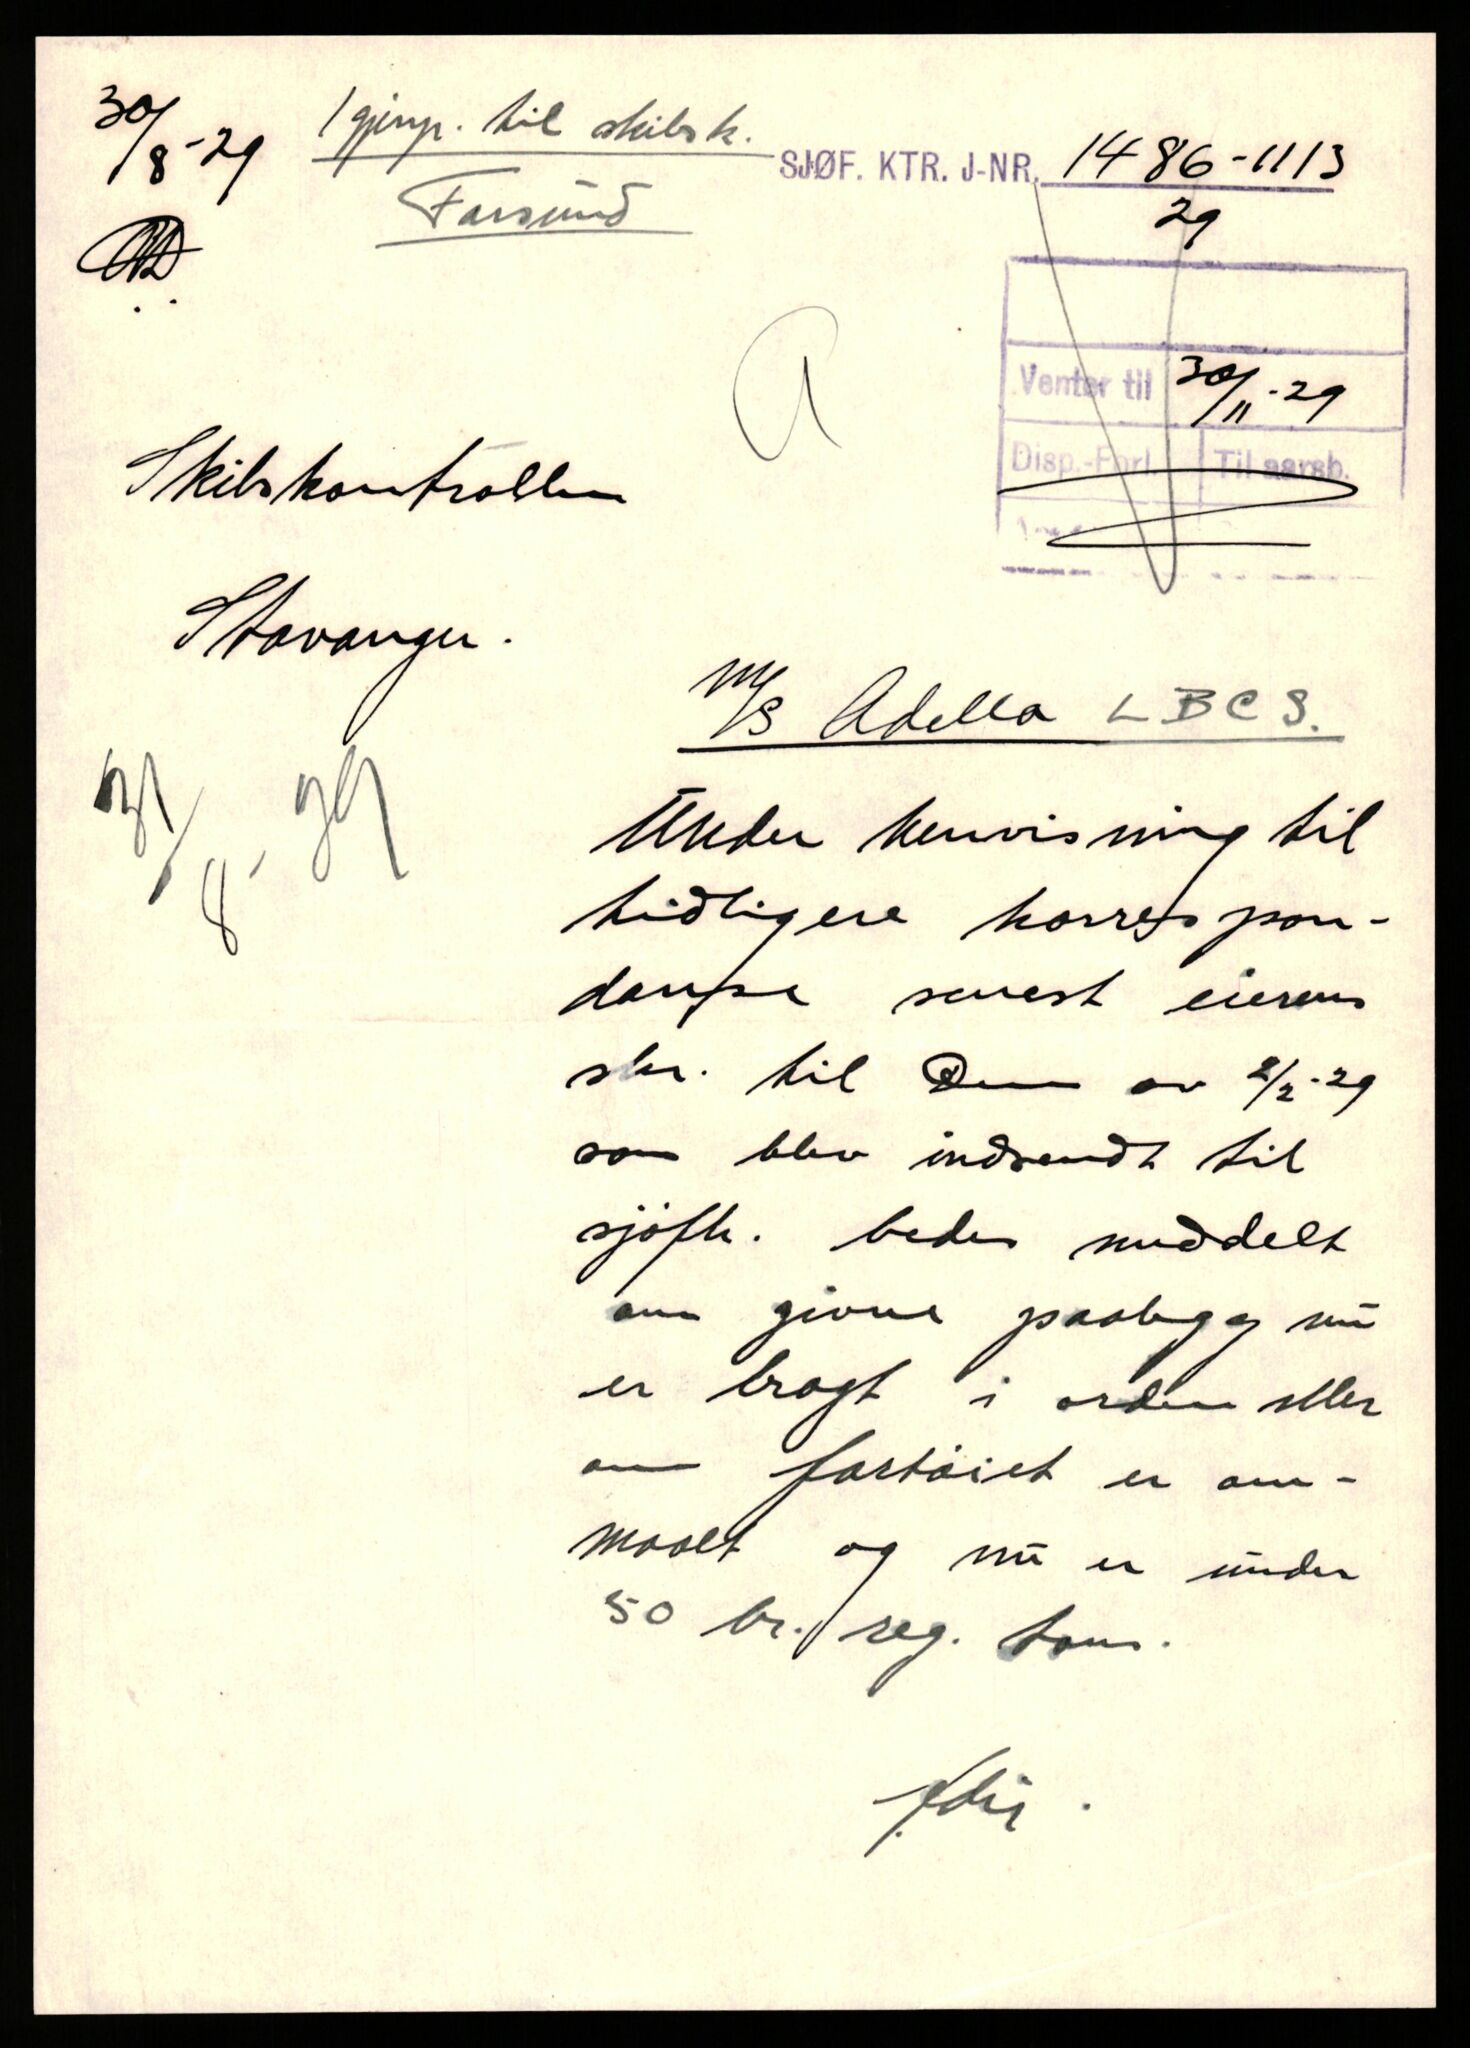 30/8-29
1 gjenp. til skibsk.
Farsund
SJØF. KTR. J-NR. 1486-1113
29
a
Venter til 30/11-29
Disp.-Forl. Til aarsb.
Skibskontrollen
Stavanger.
31/8-29
M/S Adella LBCS.
Under henvisning til
tidligere korrespon-
danse senest eierens
skr. til Dem av 2/2-29
som blev indsendt til
sjøfk. bedes meddelt
om givne paalegg nu
er bragt i orden eller
om fartøiet er om-
maalt og nu er under
50 br. reg. tons.